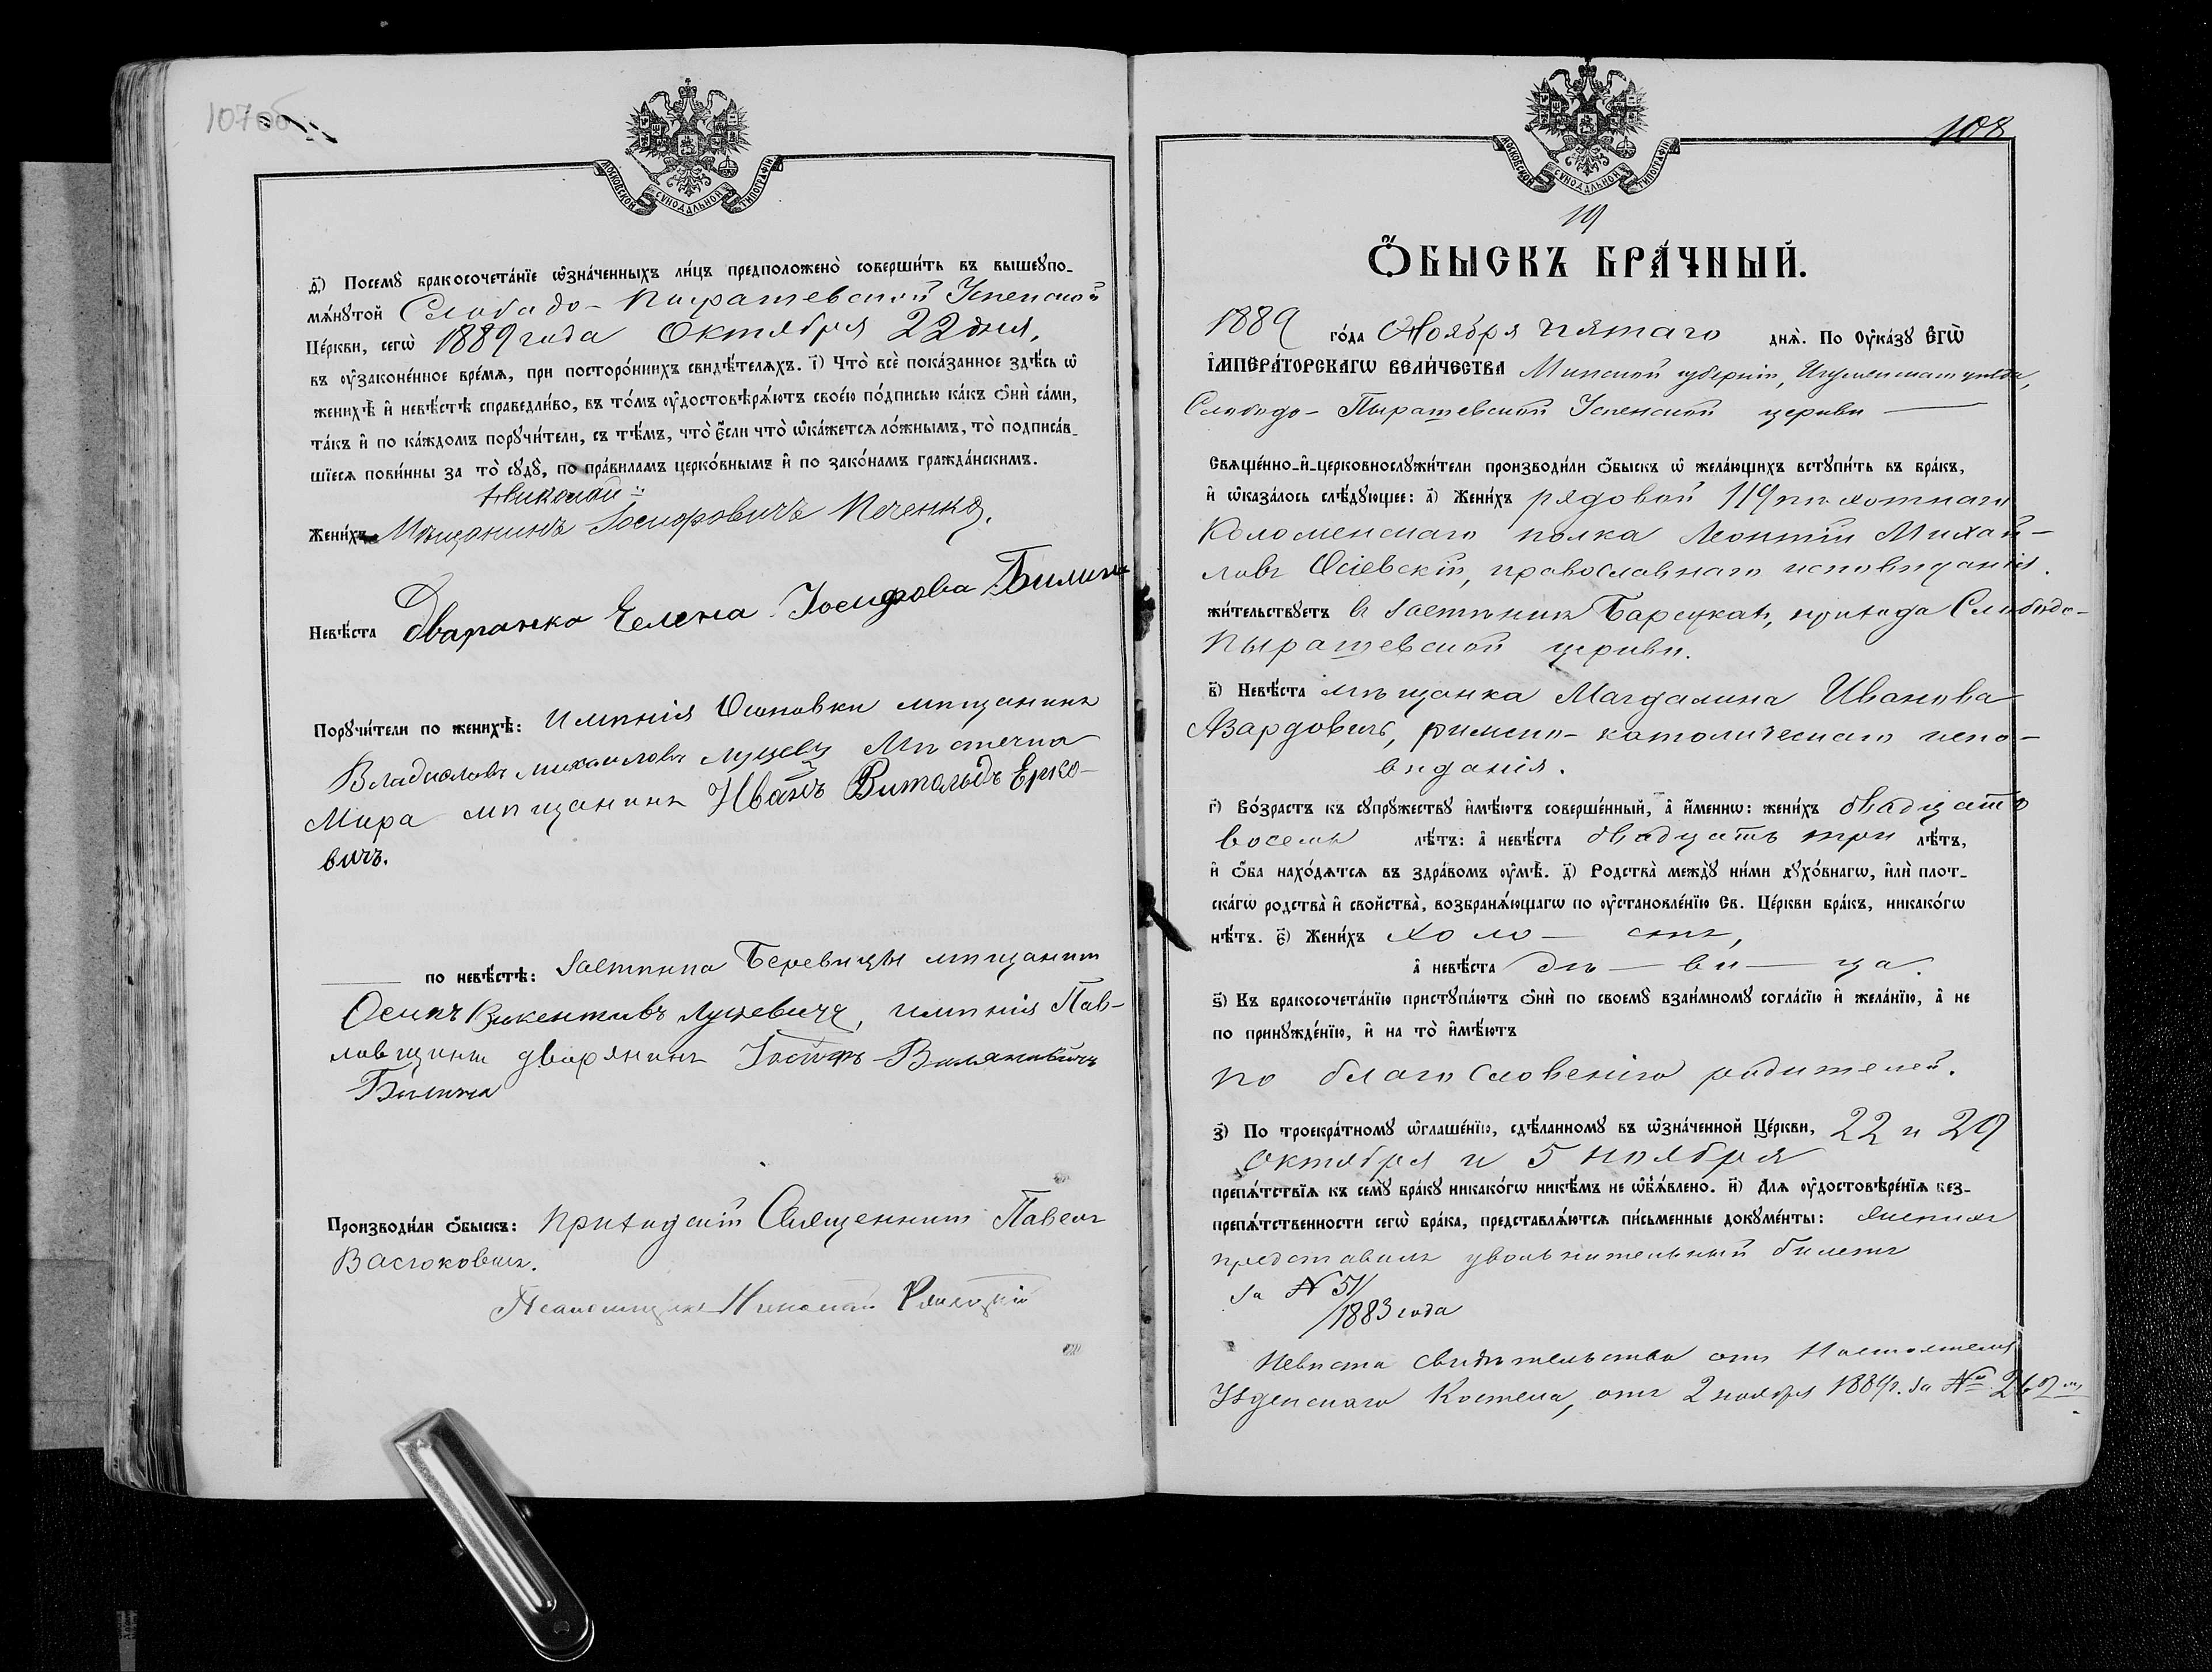 107об
МОСКОВСКОЙ СѴНОДАЛЬНОЙ ТИПОГРАФІИ
д҃) Посемꙋ̀ бракосочета́нїе ѡ҆зна́ченныхъ ли́цъ предположено̀ соверши́ть въ вышеꙋпо-
мѧ́нꙋтой Слободо-Пырашевской Успенской
Це́ркви, сегѡ̀ 1889 года Октября 22 дня,
въ ᲂу҆законе́нное вре́мѧ, при посторо́ннихъ свидѣ́телѧхъ. і҃) Что̀ всѐ пока́занное здѣ́сь ѡ҆
женихѣ̀ и҆ невѣ́стѣ справедли́во, въ то́мъ ᲂу҆достовѣрѧ́ютъ свое́ю по́дписью ка́къ ѻ҆нѝ са́ми,
та́къ и҆ по ка́ждомъ порꙋчи́тели, съ тѣ́мъ, что̀ є҆́сли что̀ ѡ҆ка́жетсѧ ло́жнымъ, то̀ подписа́в-
шїесѧ пови́нны за то̀ сꙋдꙋ̀, по пра́виламъ церко́внымъ и҆ по зако́намъ гражда́нскимъ.
Николай
Жени́хъ Мѣщанинъ Іосифовичъ Печенко.
Невѣ́ста дваранка Елена Іосифова Билина
Порꙋчи́тели по женихѣ̀: имѣнія Осиповки мѣщанинъ
Владиславъ Михаиловъ Луцевъ Мѣстечка
Мира мѣщанинъ Иванъ Витольдъ Ерко-
вичъ.
по невѣ́стѣ: застѣнка Беревицы мѣщанинъ
Осипъ Викентивъ Луцевичъ, имѣнія Пав-
ловщины дворянинъ Іосифъ
Билина
Производи́ли ѻ҆́быскъ: приходскій Священникъ Павелъ
Васюковичъ.
Псаломщикъ Николай
108
МОСКОВСКОЙ СѴНОДАЛЬНОЙ ТИПОГРАФІИ
19
Ѻ҆́БЫСКЪ БРА́ЧНЫЙ.
1889 го́да Ноября пятаго днѧ̀. По ᲂу҆ка́зꙋ Є҆ГѠ̀
І҆МПЕРА́ТОРСКАГѠ ВЕЛИ́ЧЕСТВА Минской губерніи, Игуменскаго уѣзда,
Слободо-Пырашевской Успенской церкви
Свѧще́нно-и҆-церковнослꙋжи́тели производи́ли ѻ҆́быскъ ѡ҆ жела́ющихъ встꙋпи́ть въ бра́къ,
и҆ ѡ҆каза́лось слѣ́дꙋющее: а҃) Жени́хъ рядовой 119 пѣхотнаго
Коломенскаго полка Леонтій Михай-
ловъ Осіевскій, православнаго исповѣданія.
жи́тельствꙋетъ в застѣнкѣ Барсукахъ, прихода Слободо-
Пырашевской церкви.
в҃) Невѣ́ста мѣщанка Магдалина Иванова
Азардовичъ, римско-католическаго испо-
вѣданія.
г҃) Во́зрастъ къ сꙋпрꙋ́жествꙋ и҆мѣ́ютъ соверше́нный, а҆ и҆́меннѡ: жени́хъ двадцать
восемь лѣ́тъ: а҆ невѣ́ста двадцать три лѣ́тъ,
и҆ ѻ҆́ба нахо́дѧтсѧ въ здра́вомъ ᲂу҆мѣ̀. д҃) Родства̀ междꙋ̀ ни́ми дꙋхо́внагѡ, и҆лѝ плот-
ска́гѡ родства̀ и҆ свойства̀, возбранѧ́ющагѡ по ᲂу҆становле́нїю Св. Це́ркви бра́къ, никако́гѡ
нѣ́тъ. є҃) Жени́хъ холо — стъ,
а҆ невѣ́ста дѣ — ви — ца.
ѕ҃) Къ бракосочета́нїю пристꙋпа́ютъ ѻ҆нѝ по своемꙋ̀ взаи́мномꙋ согла́сїю и҆ жела́нїю, а҆ не
по принꙋжде́нїю, и҆ на то̀ и҆мѣ́ютъ
по благословенію родителей.
з҃) По троекра́тномꙋ ѡ҆глаше́нїю, сдѣ́ланномꙋ въ ѡ҆зна́ченной Це́ркви, 22 и 29
Октября и 5 ноября
препѧ́тствїѧ къ семꙋ̀ бра́кꙋ никако́гѡ никѣ́мъ не ѡ҆б̾ѧ́влено. и҃) Длѧ ᲂу҆достовѣре́нїѧ без-
препѧ́тственности сегѡ̀ бра́ка, представлѧ́ютсѧ пи́сьменные докꙋме́нты: Женихъ
представилъ увольнительный билетъ
за N 51/
1883 года
Невѣста свидѣтельство отъ Настоятеля
Узденскаго Костела, отъ 2 ноября 1889 г. за №